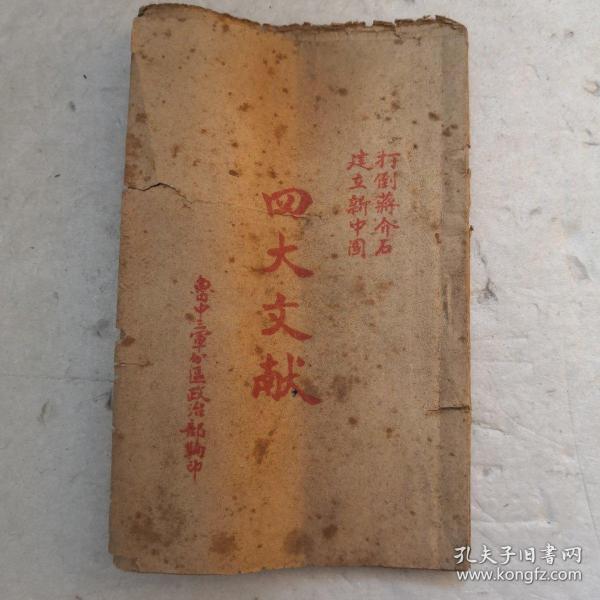 打倒蔣介石
建立新中國
四大文献
魯中三軍分區政治部翻印
孔夫子旧書网
www.kongfz.com